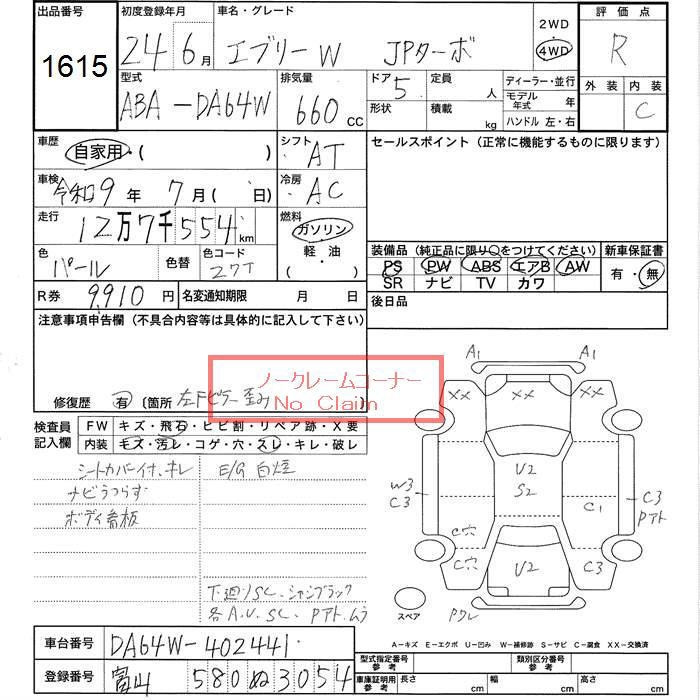 出品番号
1615
初度登録年月
24年6月
車名・グレード
エブリーW JPターボ
2WD
4WD
評価点
R
外装 内装
C
型式
ABA-DA64W
排気量
660 CC
ドア 5
形状
定員 人
積載 kg
ディーラー・並行
モデル年式 年
ハンドル 左・右
車歴
自家用・( )
シフト
AT
セールスポイント (正常に機能するものに限ります)
車検
令和9年 7月( 日)
冷房
AC
走行
12万7千554km
燃料
ガソリン
軽・油
( )
色
パール
色替
色コード
Z7T
装備品 (純正品に限り○をつけてください)
新車保証書
PS PW ABS エアB AW
SR ナビ TV カワ
有・無
R券 9,910円
名変通知期限 月 日
後日品
注意事項申告欄 (不具合内容等は具体的に記入して下さい)
ノークレームコーナー
No Claim
修復歴 有 〔箇所 左Fピラー歪み
検査員記入欄
FW キズ・飛石・ヒビ割・リペア跡・X要
内装 キズ・汚レ・コゲ・穴・スレ・キレ・破レ
シートカバー付、キレ
E/G 白煙
ナビうつらず
ボディ看板
下廻りSC、シャシブラック
各A.U.SC、Pアト、ムラ
A1 A1
XX XX
U2
S2
W3
C3
C1
C3
Pアト
C穴
C穴
U2
C3
スペア
Pワレ
A－キズ E－エクボ U－凹み W－補修跡 S－サビ C－腐食 XX－交換済
車台番号 DA64W-402441
登録番号 富山 580 ぬ 3054
型式指定番号 参考
類別区分番号 参考
車庫証明用 参考
長さ cm
幅 cm
高さ cm